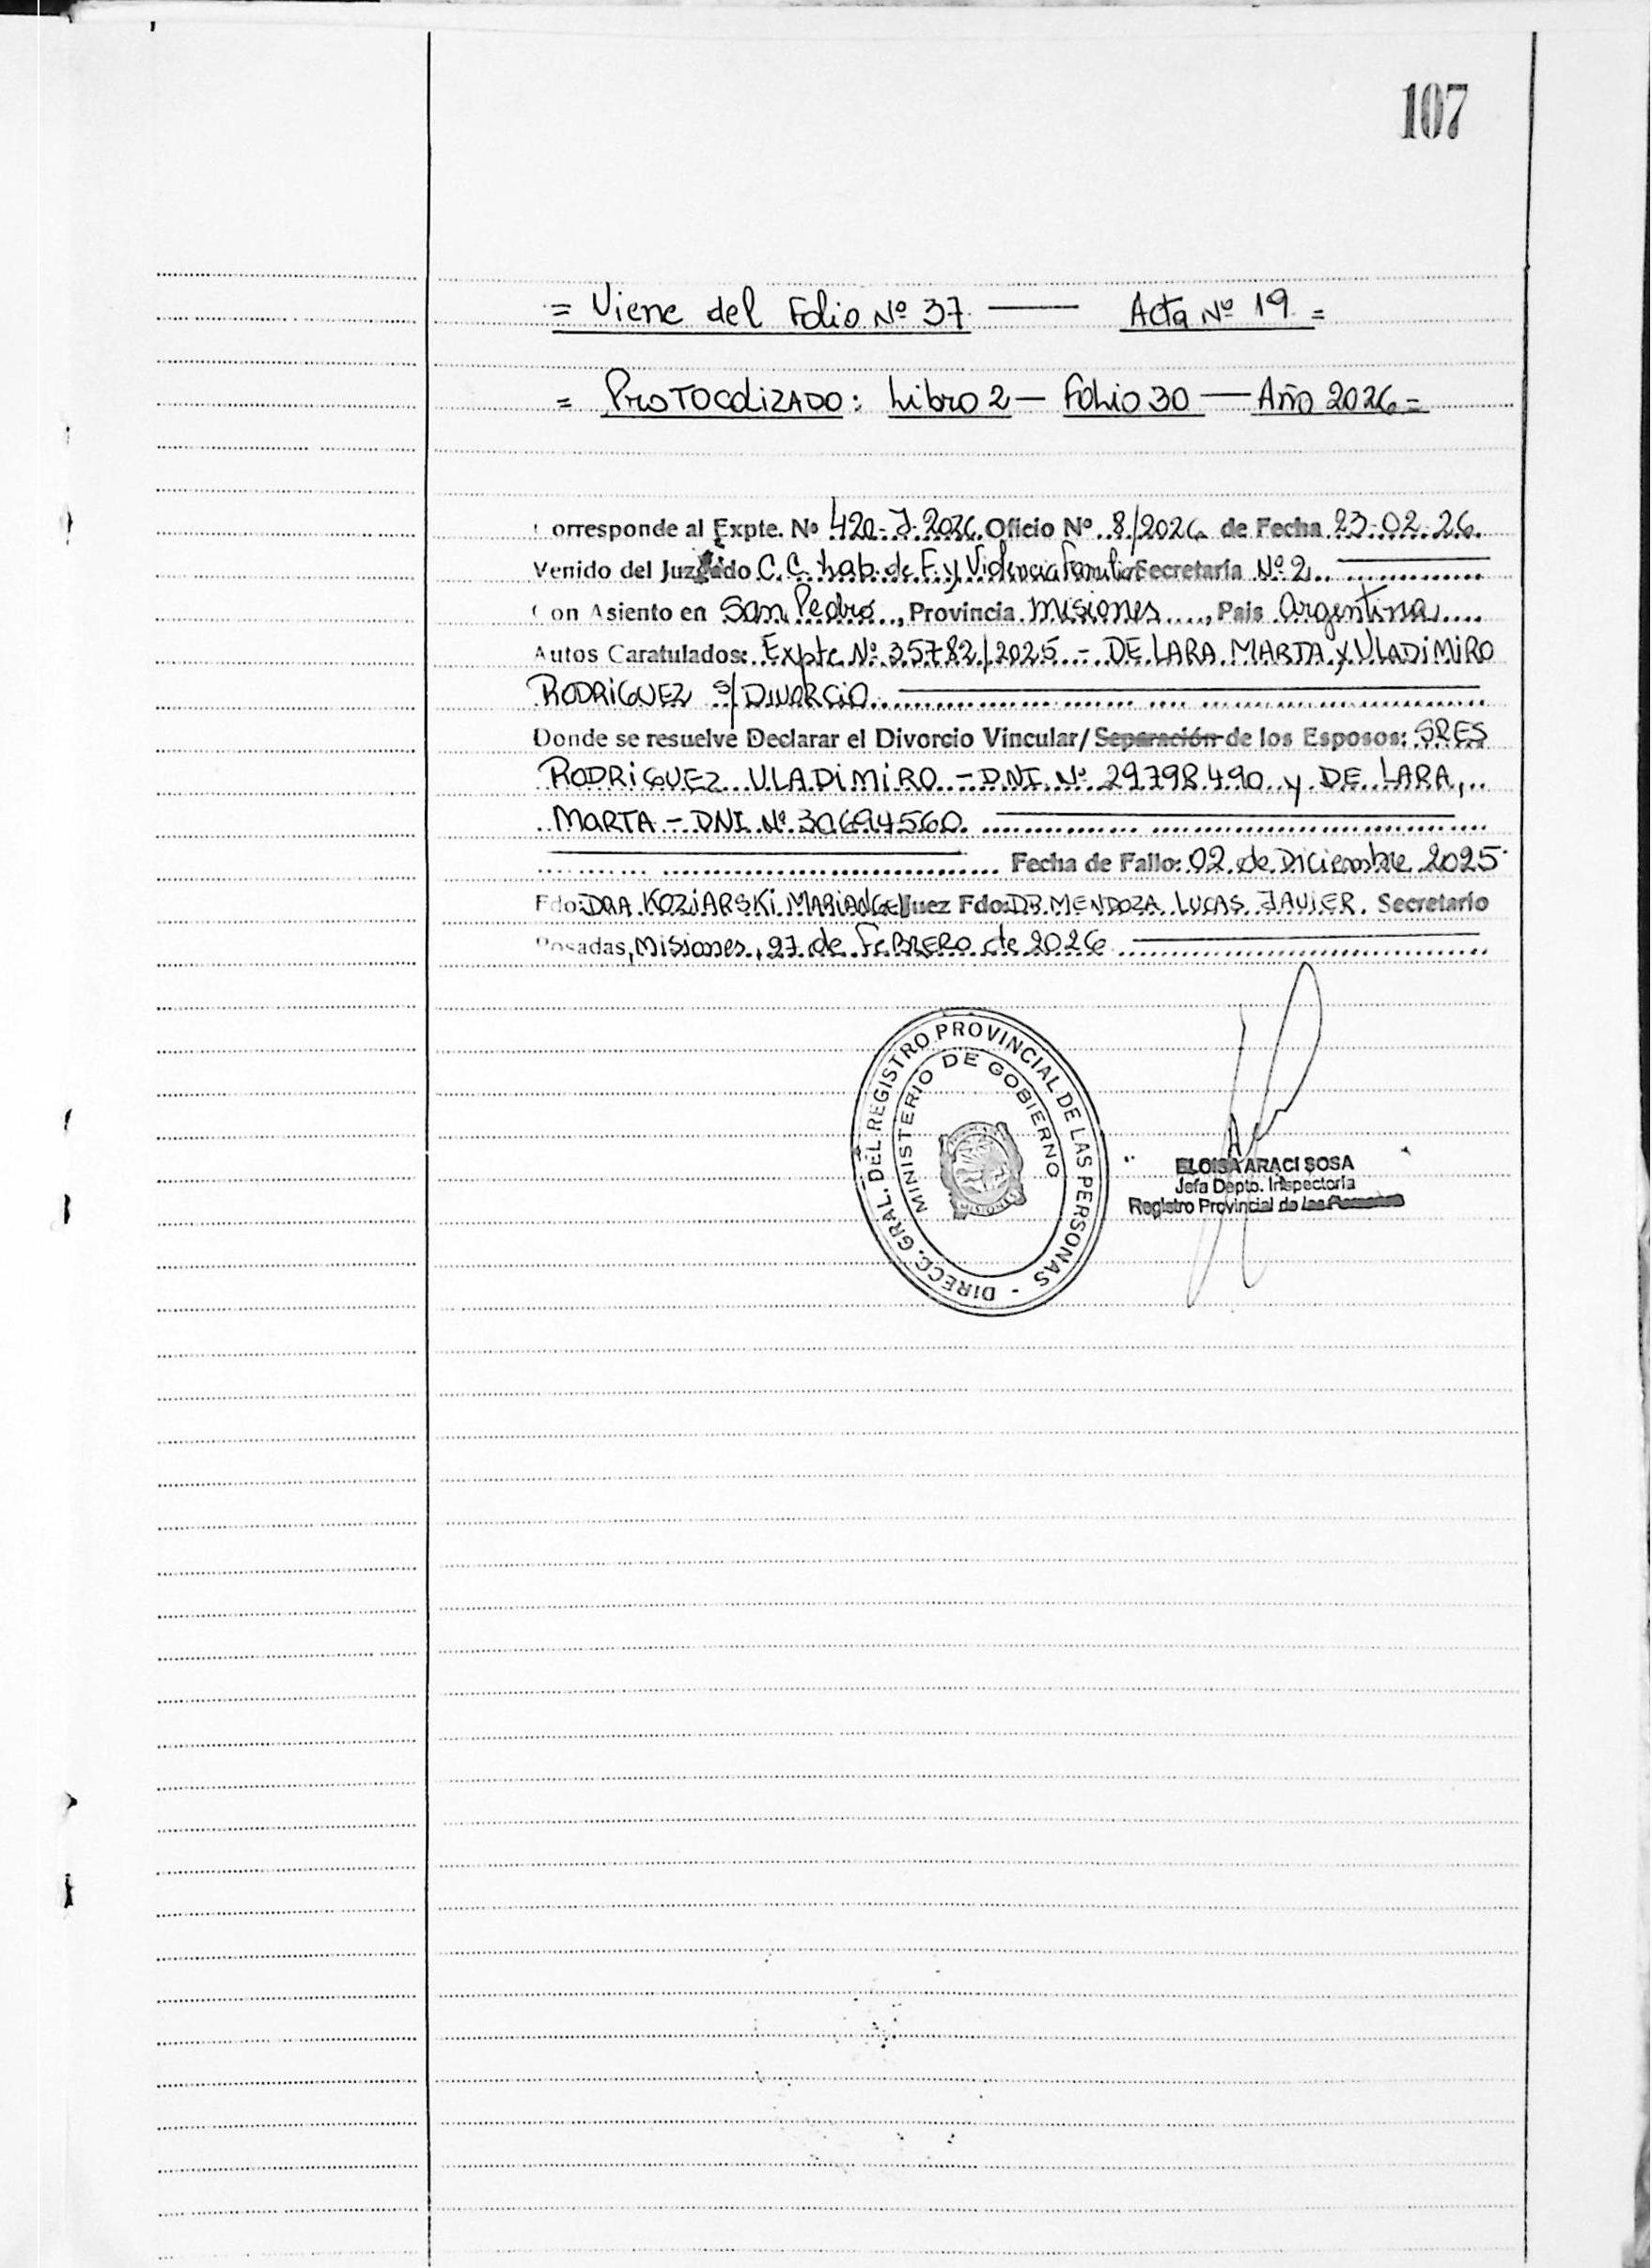 107
= Viene del Folio Nº 37 — Acta Nº 19 =
= PROTOCOLIZADO: Libro 2 — Folio 30 — Año 2026 =
Corresponde al Expte. Nº 420-J-2026 Oficio Nº 8/2026 de Fecha 23-02-26
Venido del Juzgado C.C. Lab. de F. y Violencia Familiar Secretaría Nº 2
Con Asiento en San Pedro, Provincia Misiones, Pais Argentina
Autos Caratulados: Expte Nº 35782/2025 - DE LARA MARTA y VLADIMIRO
RODRIGUEZ S/ DIVORCIO
Donde se resuelve Declarar el Divorcio Vincular/Separación de los Esposos: SRES
RODRIGUEZ VLADIMIRO - DNI Nº 29.798.490 y DE LARA,
MARTA - DNI Nº 30694560
Fecha de Fallo: 02 de Diciembre 2025
Fdo: DRA KOZIARSKI MARIANGEL Juez Fdo: DR. MENDOZA LUCAS JAVIER. Secretario
Posadas, Misiones, 27 de FEBRERO de 2026
DIRECC. GRAL. DEL REGISTRO PROVINCIAL DE LAS PERSONAS -
MINISTERIO DE GOBIERNO
ELOISA ARACI SOSA
Jefa Depto. Inspectoria
Registro Provincial de las Personas